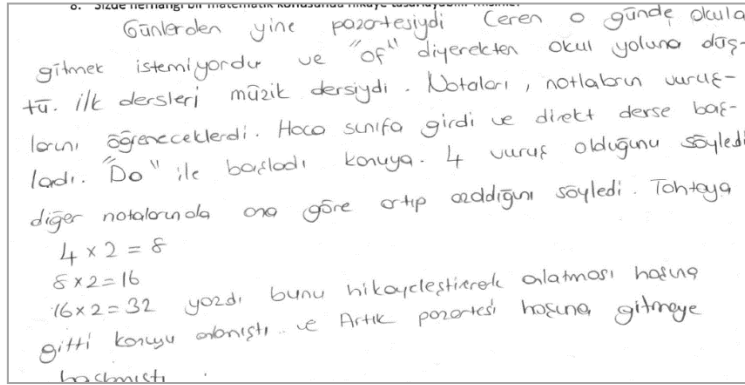 8. Sizde herhangi bir matematik konusunda hikaye tasarlayabilir misiniz?
Günlerden yine pazartesiydi Ceren o günde okula
gitmek istemiyordu ve "of" diyerekten okul yoluna düş-
tü. ilk dersleri müzik dersiydi. Notaları, notların vuruş-
larını öğreneceklerdi. Hoca sınıfa girdi ve direkt derse baş-
ladı. "Do" ile başladı konuya. 4 vuruş olduğunu söyledi
diğer notalarında ona göre artıp azaldığını söyledi. Tahtaya
4 x 2 = 8
8 x 2 = 16
16 x 2 = 32 yazdı bunu hikayeleştirerek anlatması hoşuna
gitti konuyu anlamıştı ve Artık pazartesi hoşuna gitmeye
başlamıştı.